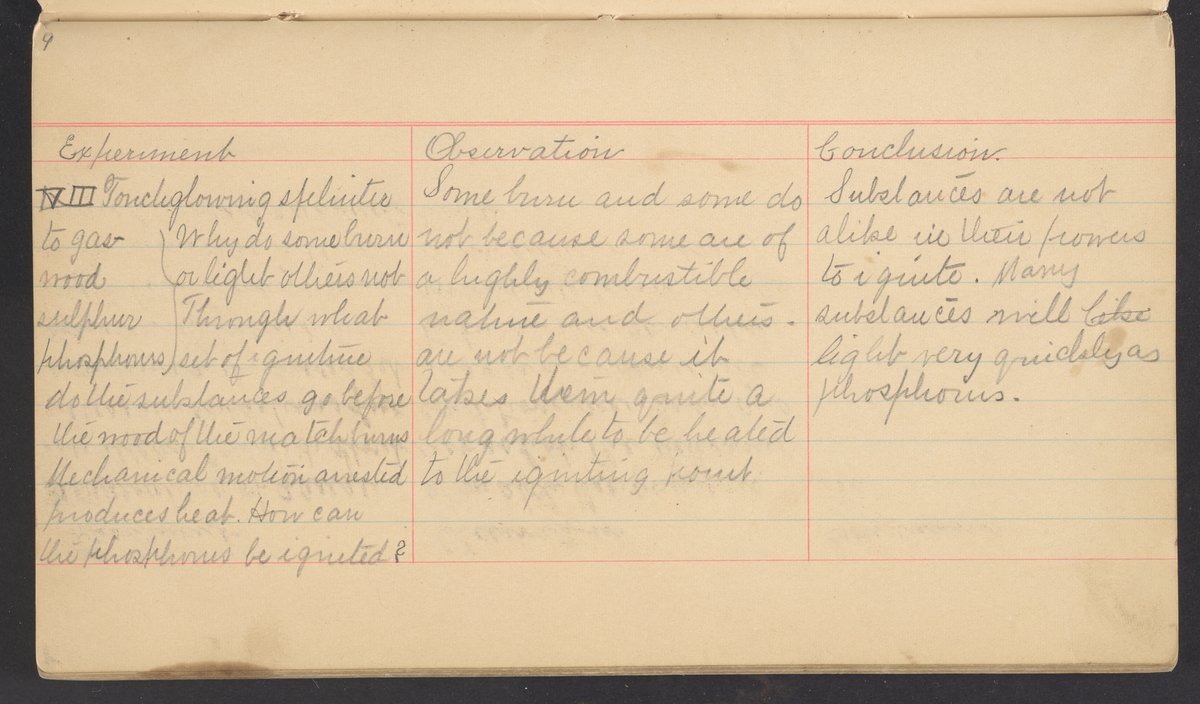 9
Experiment
IV III Touch glowing splinter
to gas
wood
sulphur
phosphorus
Why do some burn
or light others not
Through what
set of ignitive
do the substances go before
the wood of the match burns
Mechanical motion arrested
produces heat. How can
the phosphorus be ignited?
Observation
Some burn and some do
not because some are of
a highly combustible
nature and others.
are not because it
takes them quite a
long while to be heated
to the igniting point
Conclusion.
Substances are not
alike in their powers
to ignite. Many
substances will like
light very quickly as
phosphorus.